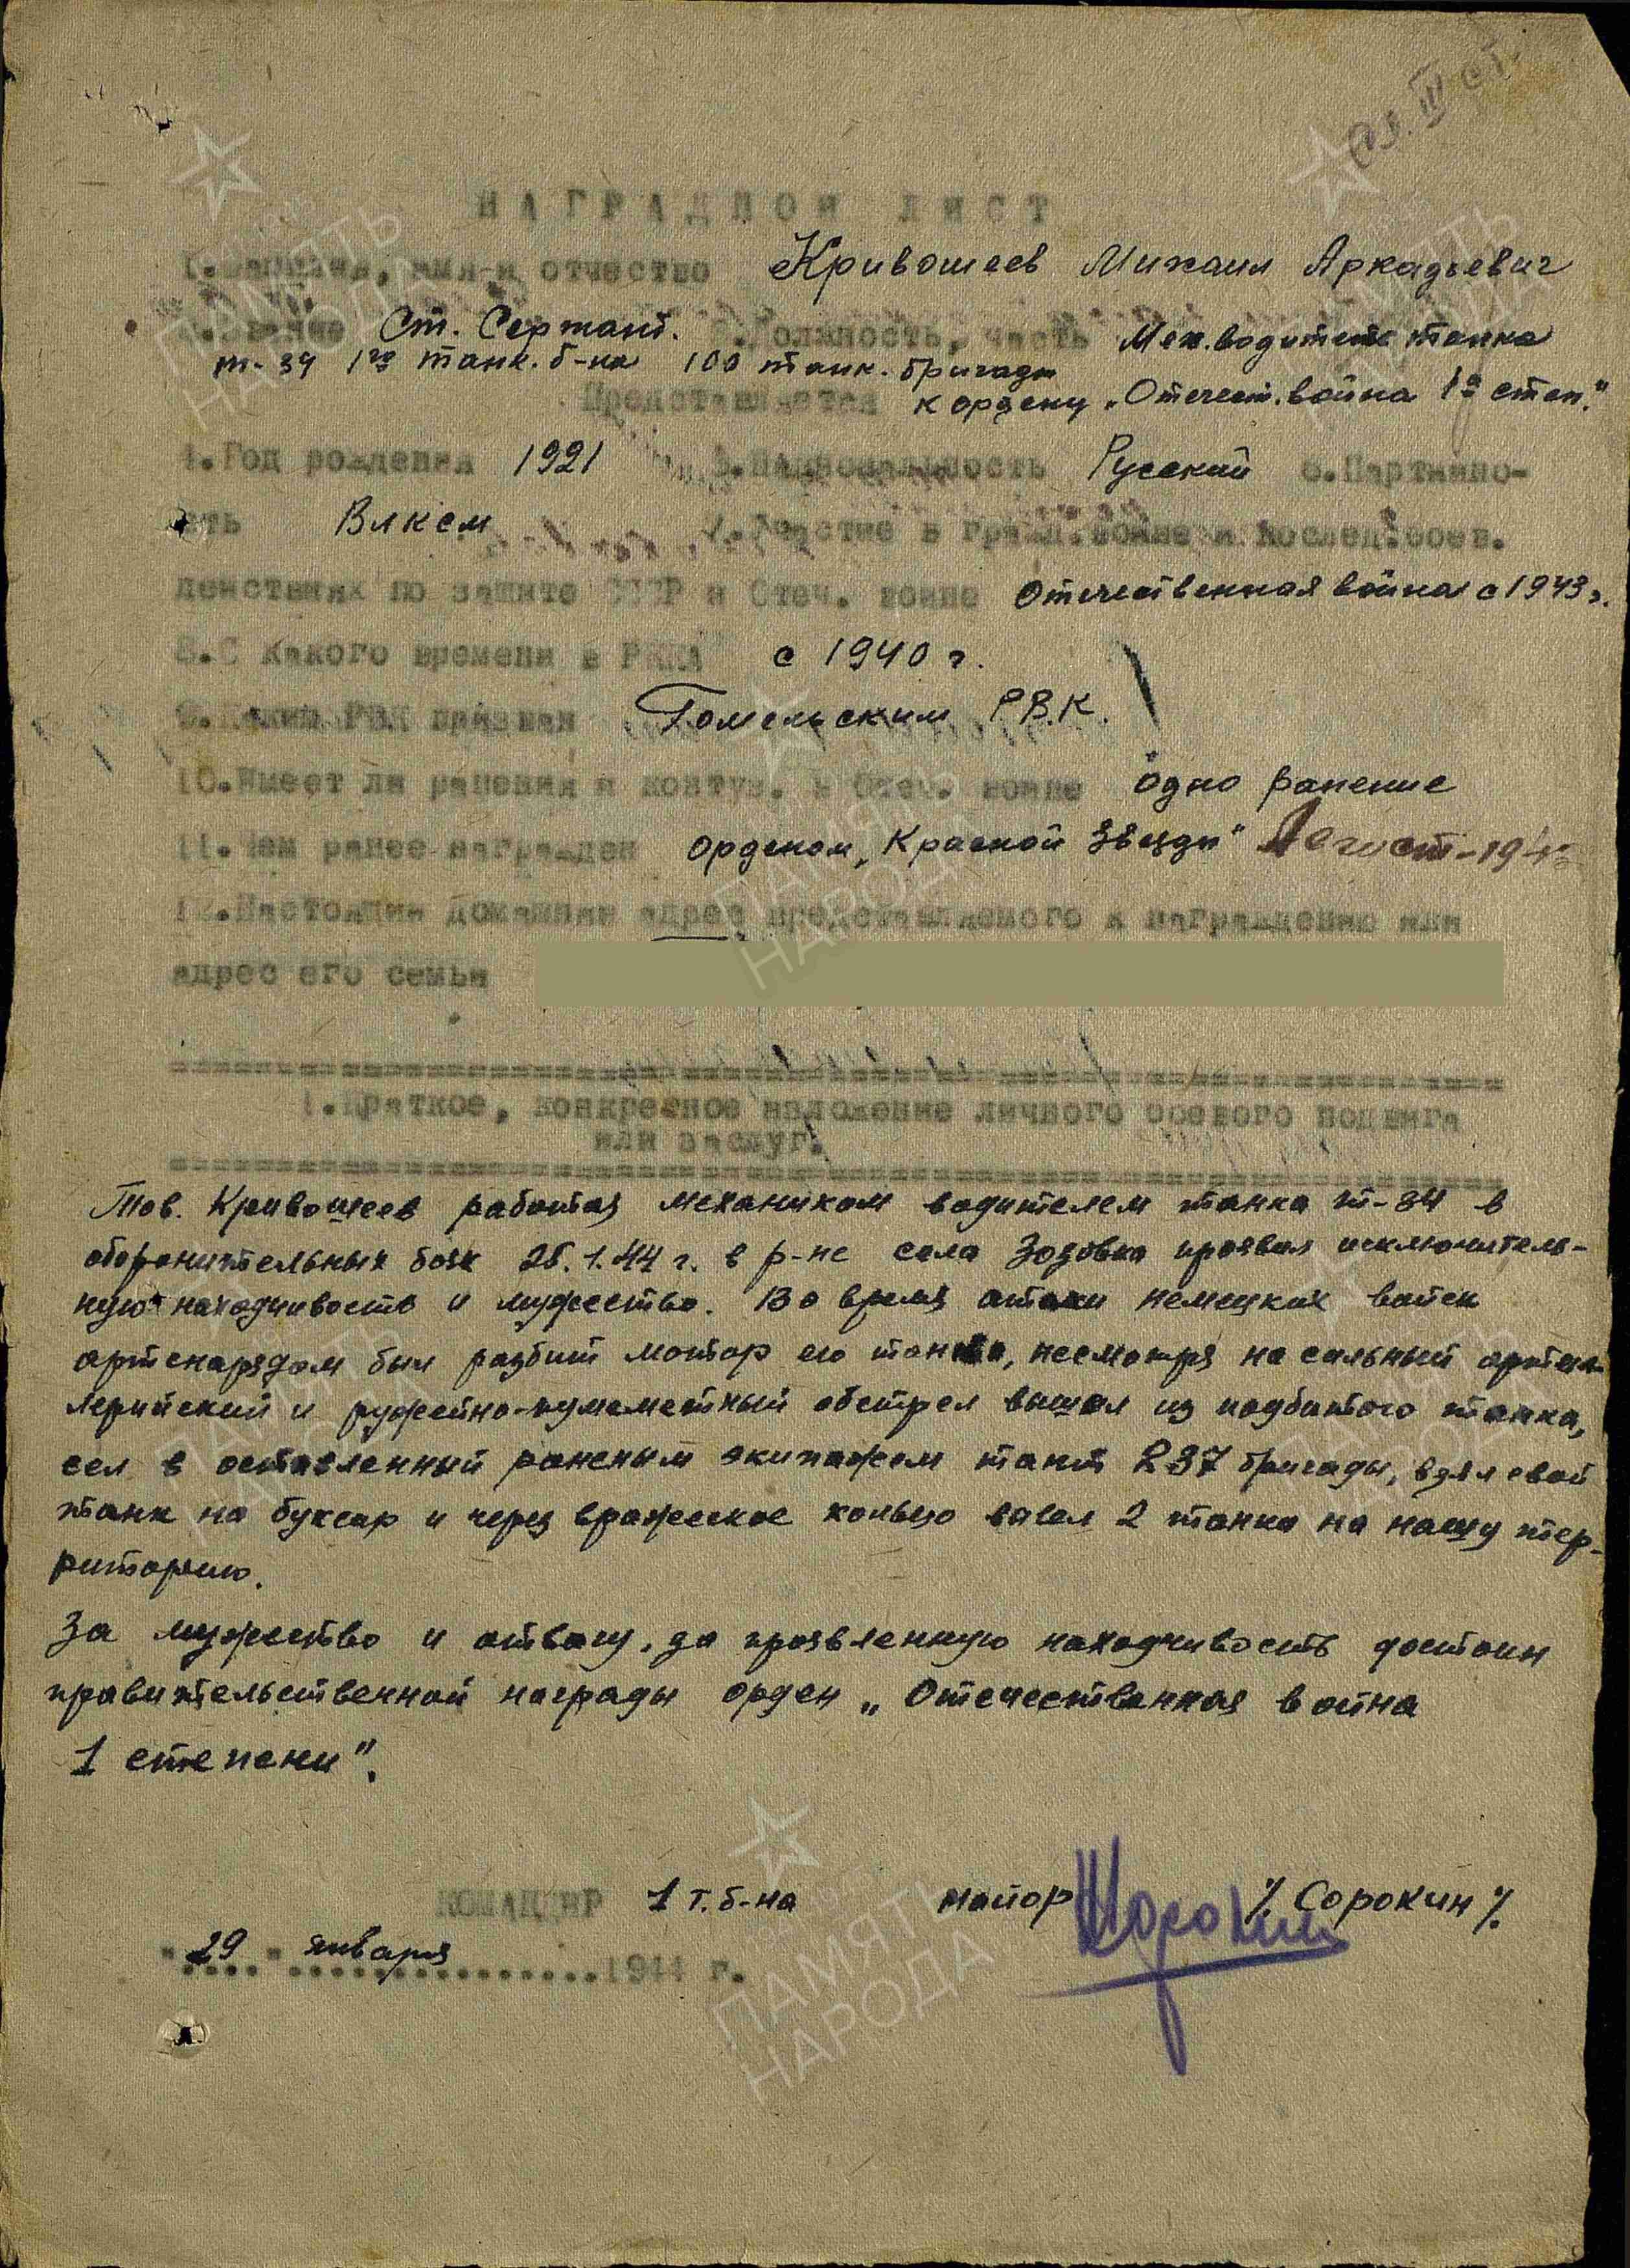 Сл. III ст.
НАГРАДНОЙ ЛИСТ
1.Фамилия, имя и отчество Кривошеев Михаил Аркадьевич
2.Звание Ст. Сержант. 3.Должность, часть Мех.водитель танка
т-34 1го танк. б-на 100 танк. бригады
Представляется к ордену „Отечест. война 1й степ."
4.Год рождения 1921 5.Национальность Русский 6.Партийно-
сть Влксм 7.Участие в гражд.войне и послед.боев.
действиях по защите СССР и Отеч. войне Отечественная война с 1943 г.
8.С какого времени в РККА с 1940 г.
9.Каким РВК призван Гомельским Р.В.К.
10.Имеет ли ранения и контуз. в Отеч. войне одно ранение
11.Чем ранее награжден орденом „Красной Звезды" Август-194
12.Настоящий домашний адрес представляемого к награждению или
адрес его семьи
1.Краткое, конкретное изложение личного боевого подвига
или заслуг.
Тов. Кривошеев работая механиком водителем танка т-34 в
оборонительных боях 26.1.44 г. в р-не села Зозовка проявил исключитель-
ную находчивость и мужество. Во время атаки немецких войск
артснарядом был разбит мотор его танка, несмотря на сильный артил-
лерийский и ружейно-пулеметный обстрел вышел из подбитого танка,
сел в оставленный раненым экипажем танк 237 бригады, взял свой
танк на буксир и через вражеское кольцо вывел 2 танка на нашу тер-
риторию.
За мужество и отвагу, за проявленную находчивость достоин
правительственной награды орден „Отечественная война
1 степени".
КОМАНДИР 1 т.б-на майор Сорокин /Сорокин/.
"29" января 1944 г.
ПАМЯТЬ НАРОДА